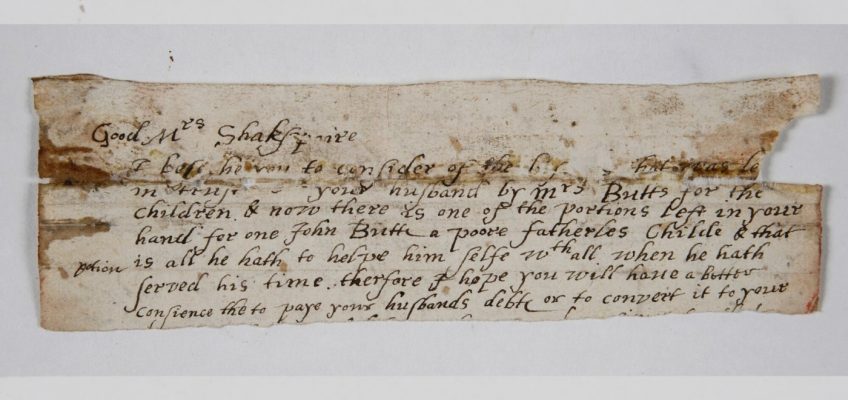 Good Mrs Shakspaire
I bese he you to consider of the that was le
in trust your husband by Mrs Butts for the
Children & now there is one of the portions left in your
hand for one John Butts a poore fatherles Childe & that
potion is all he hath to helpe him selfe wth all when he hath
served his time therfore I hope you will have a better
consience the to paye your husbands debts or to convert it to your